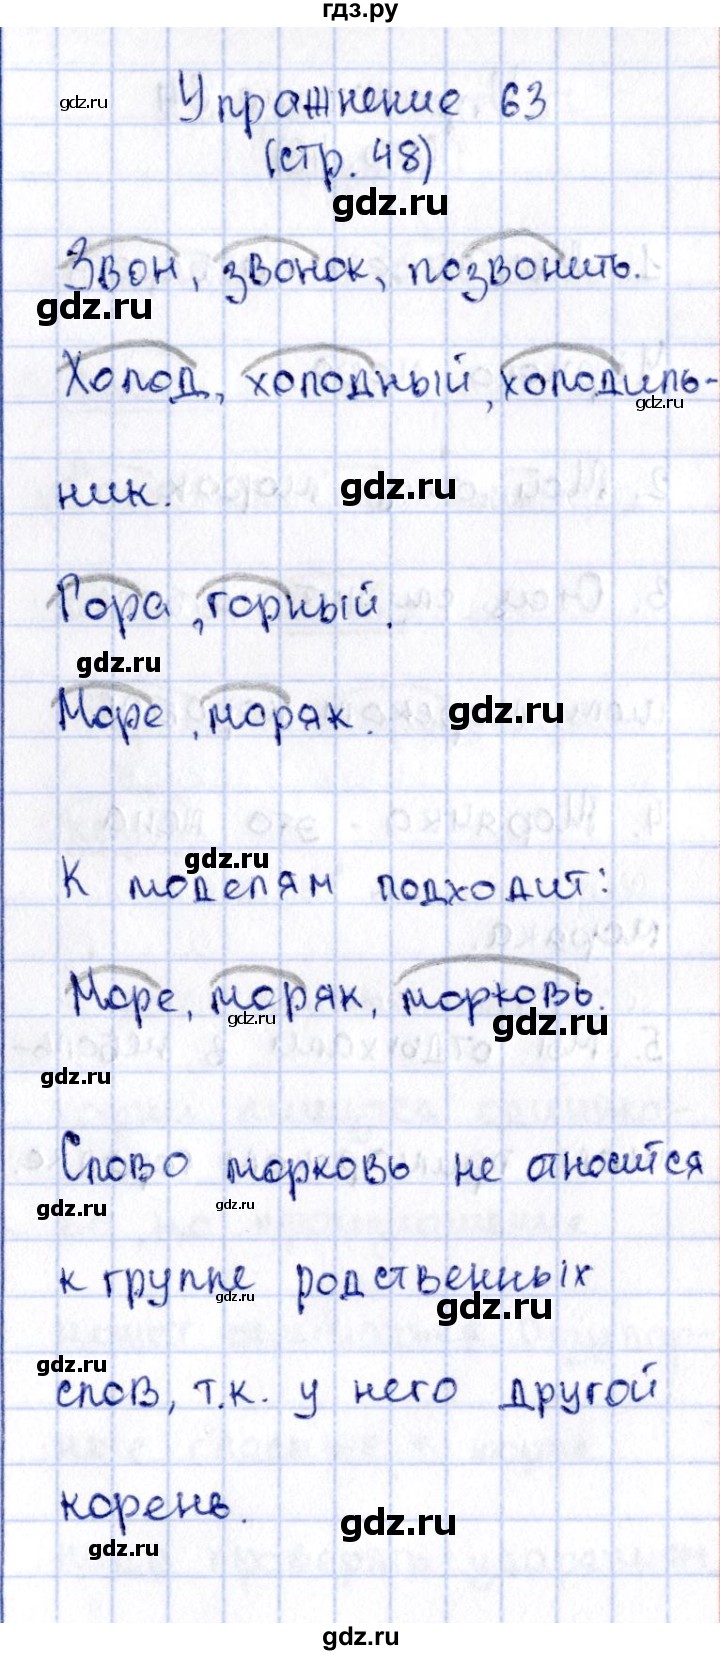 гдз.ру
gdz.ru
Упражнение 63
(стр. 48)
gdz.ru
Звон, звонок, позвонить.
gdz.ru
Холод, холодный, холодиль-
gdz.ru
ник.
gdz.ru
Гора, горный.
gdz.ru
Море, моряк.
gdz.ru
gdz.ru
К моделям подходит:
Море, моряк, морковь.
gdz.ru
gdz.ru
gdz.ru
Слово морковь не относится
gdz.ru
gdz.ru
к группе родственных
gdz.ru
gdz.ru
gdz.ru
слов, т.к. у него другой
корень.
gdz.ru
gdz.ru
gdz.ru